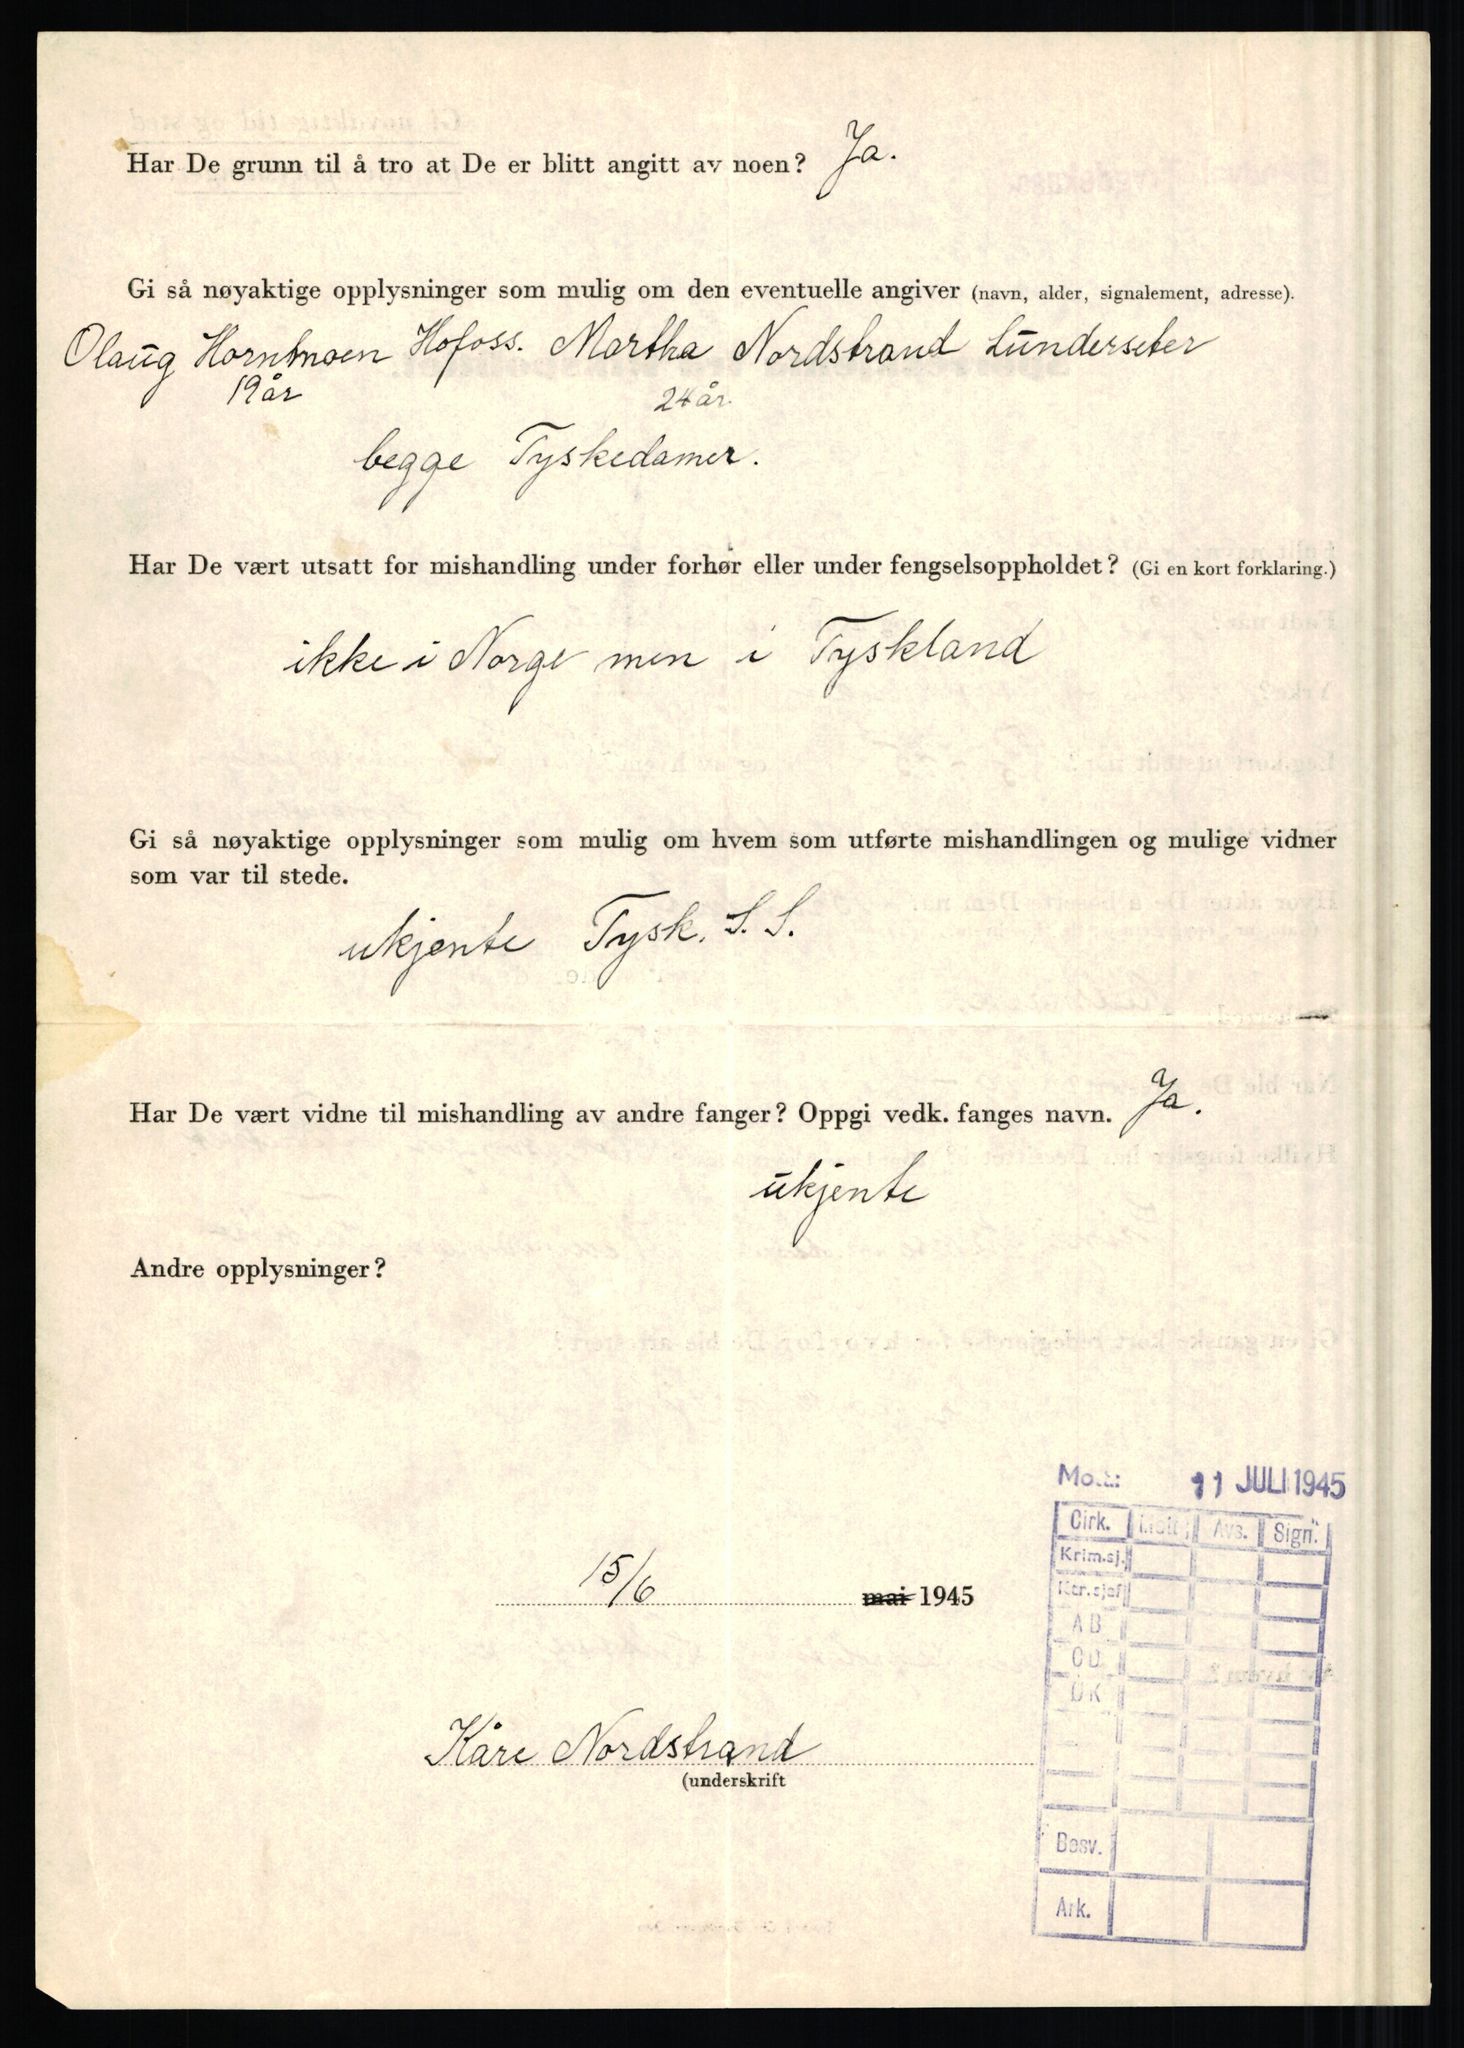 Har De grunn til å tro at De er blitt angitt av noen? Ja.
Gi så nøyaktige opplysninger som mulig om den eventuelle angiver (navn, alder, signalement, adresse).
Olaug Hornmoen Hofoss. Martha Nordstrand Lunderseter
19 år 24 år.
begge Tyskedamer.
Har De vært utsatt for mishandling under forhør eller under fengselsoppholdet? (Gi en kort forklaring.)
ikke i Norge men i Tyskland
Gi så nøyaktige opplysninger som mulig om hvem som utførte mishandlingen og mulige vidner
som var til stede.
ukjente Tysk. S. S.
Har De vært vidne til mishandling av andre fanger? Oppgi vedk. fanges navn. Ja.
ukjente
Andre opplysninger?
11 JULI 1945
Cirk. Avs. Sign.
Krim.sj.
A B
Ö K
15/6 mai 1945
Kåre Nordstrand
(underskrift
Besv.
Ark.